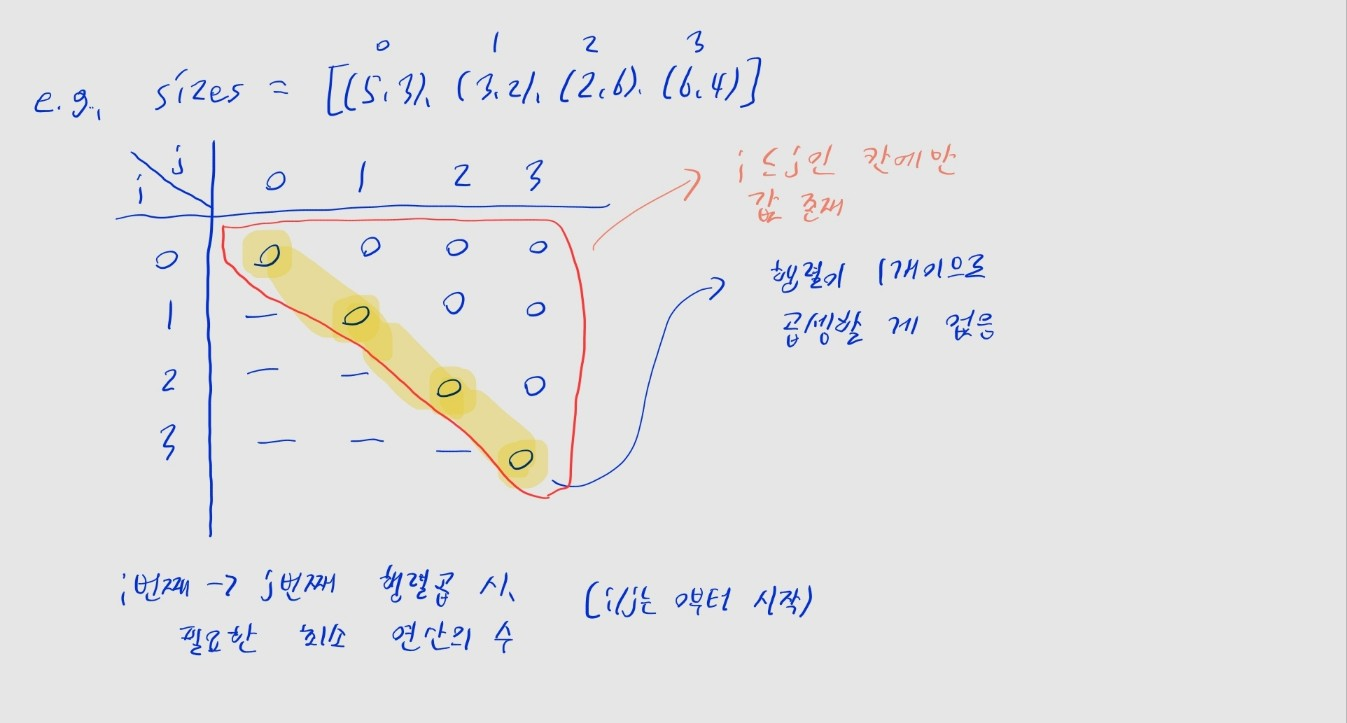 0 1 2 3
e.g., sizes = [(5,3), (3,2), (2,6), (6,4)]
i j 0 1 2 3
0 0 0 0 0
1 — 0 0 0
2 — — 0 0
3 — — — 0
i ≤ j인 칸에만
값 존재
행렬이 1개이므로
곱셈할 게 없음
i번째 -> j번째 행렬곱 시,
필요한 최소 연산의 수
(i/j는 0부터 시작)